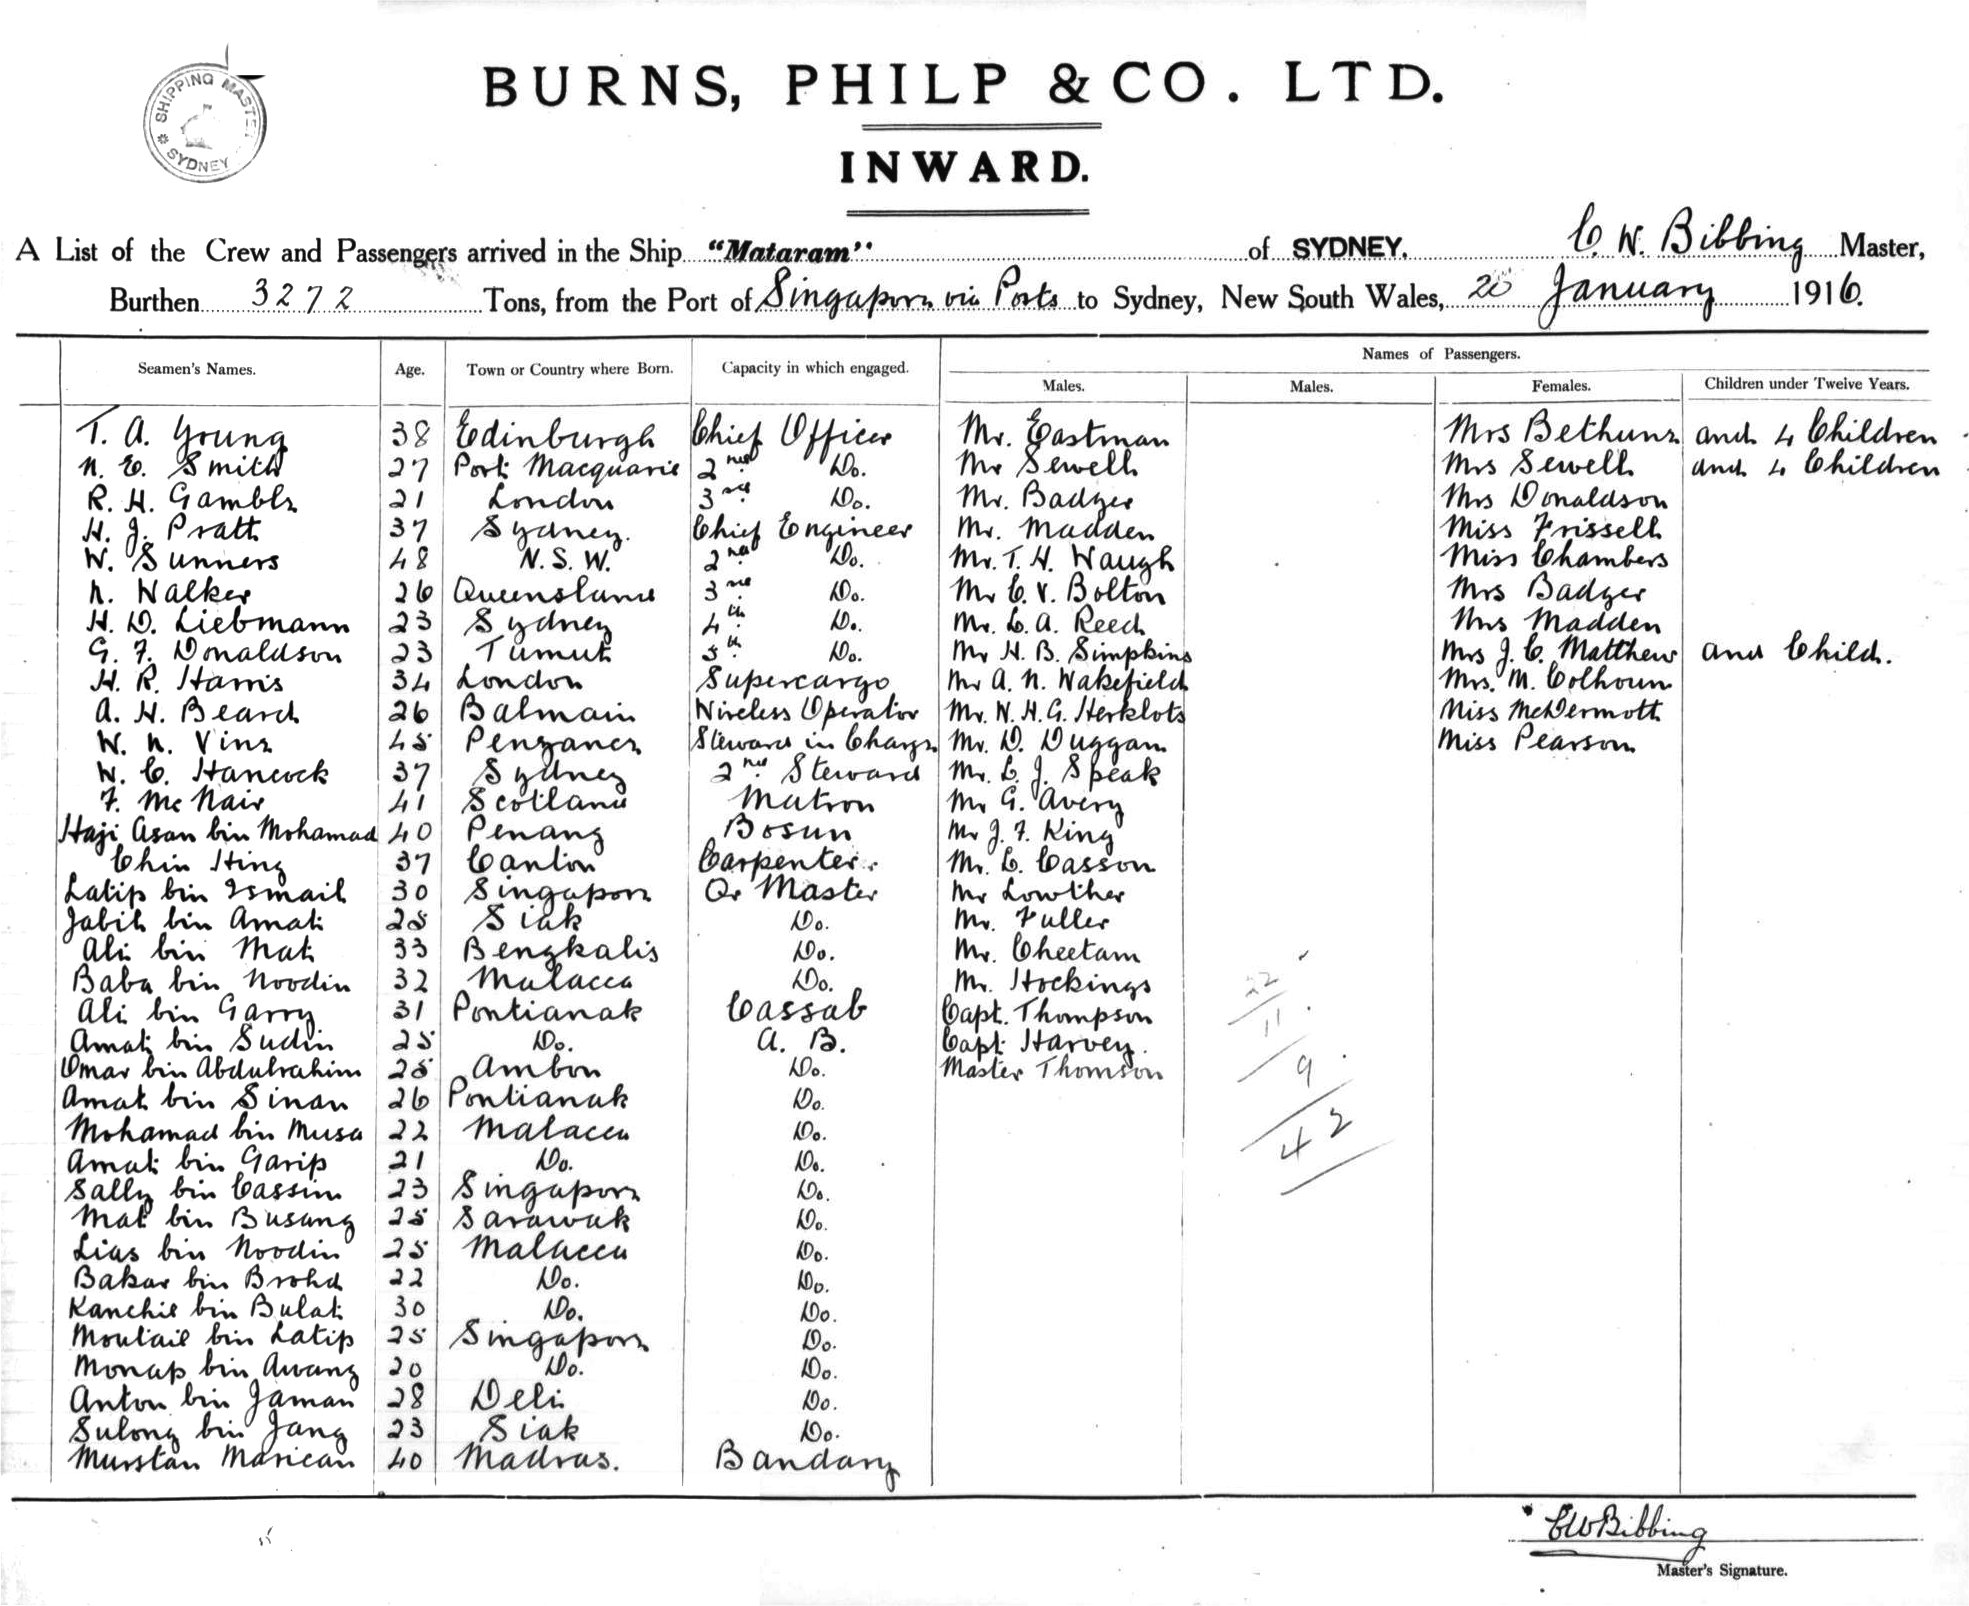 SHIPPING MASTER
SYDNEY
BURNS, PHILP & CO. LTD.
INWARD.
A List of the Crew and Passengers arrived in the Ship "Mataram" of SYDNEY. C. W. Bibbing Master,
Burthen 3272 Tons, from the Port of Singapore via Ports to Sydney, New South Wales, 20 January 1916.
Names of Passengers.
Seamen's Names. Age. Town or Country where Born. Capacity in which engaged. Males. Males. Females. Children under Twelve Years.
T. A. Young 38 Edinburgh Chief Officer Mr. Eastman Mrs Bethune and 4 Children
N. E. Smith 27 Port Macquarie 2nd Do. Mr Sewell Mrs Sewell and 4 Children
R. H. Gamble 21 London 3rd Do. Mr. Badger Mrs Donaldson
H. J. Pratt 37 Sydney. Chief Engineer Mr. Madden Miss Frissell
W. Sunners 48 N.S.W. 2nd Do. Mr. T. H. Waugh Miss Chambers
N. Walker 26 Queensland 3rd Do. Mr C. V. Bolton Mrs Badger
H. D. Liebmann 23 Sydney 4th Do. Mr. L. A. Reech Mrs Madden
G. F. Donaldson 23 Tumut 5th Do. Mr H. B. Simpkins Mrs J. C. Matthew and Child.
H. R. Harris 34 London Supercargo Mr A. N. Wakefield Mrs. M. Colhoun
A. H. Beard 26 Balmain Wireless Operator Mr. W. H. G. Herklots Miss McDermott
W. N. Vine 45 Penzance Steward in Charge Mr. D. Duggan Miss Pearson
W. C. Hancock 37 Sydney 2nd Steward Mr. L. J. Speak
F. McNair 41 Scotland Matron Mr G. Avery
Haji Asan bin Mohamad 40 Penang Bosun Mr J. F. King
Chin Hing 37 Canton Carpenter. Mr. L. Casson
Latip bin Ismail 30 Singapore Qr Master Mr Lowther
Jabit bin Amat 25 Siak Do. Mr. Fuller
Ali bin Mat 33 Bengkalis Do. Mr. Cheetam
Baba bin Noodin 32 Malacca Do. Mr. Hockings
Ali bin Garry 31 Pontianak Cassab Capt. Thompson
Amat bin Sudin 25 Do. A. B. Capt Harvey.
Omar bin Abdulrahim 25 Ambon Do. Master Thomson
Amat bin Sinan 26 Pontianak Do.
Mohamad bin Musa 22 Malacca Do.
Amat bin Garip 21 Do. Do.
Sally bin Cassim 23 Singapore Do.
Mat bin Busang 25 Sarawak Do.
Lias bin Noodin 25 Malacca Do.
Bakar bin Brohd 22 Do. Do.
Kanchil bin Bulat 30 Do. Do.
Moutail bin Latip 25 Singapore Do.
Monap bin Awang 20 Do. Do.
Anton bin Jaman 28 Deli Do.
Sulong bin Jang 23 Siak Do.
Murstan Marican 40 Madras. Bandary
22
11
9
42
CW Bibbing
Master's Signature.